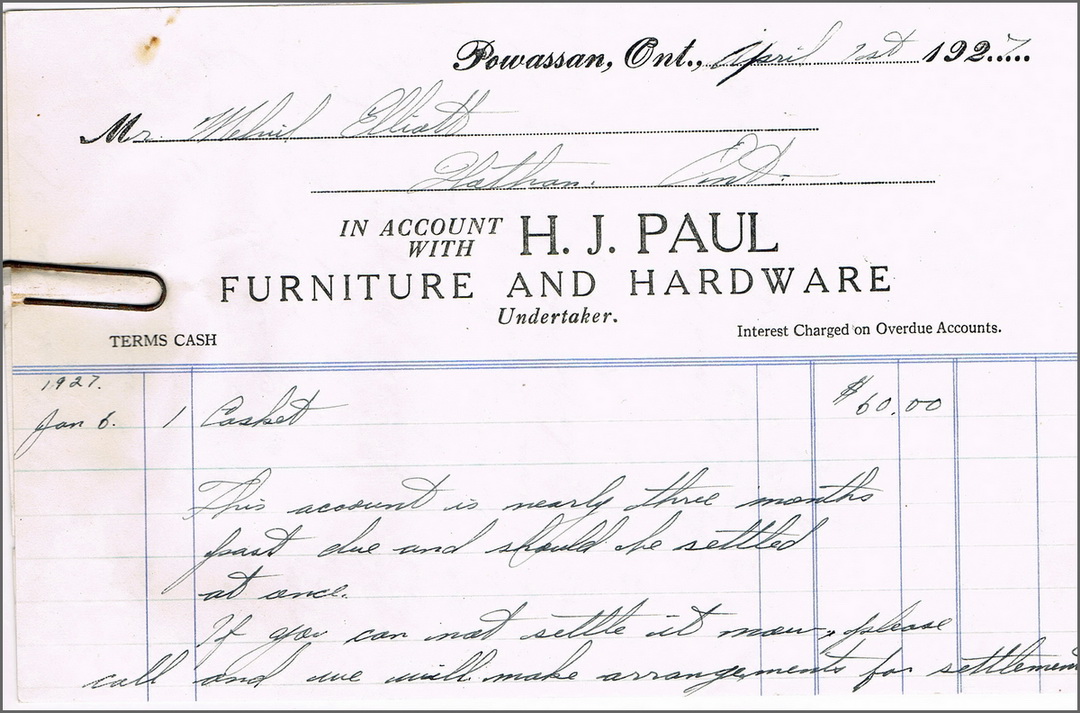 Powassan, Ont., April 1st 1927
Mr. Melvil Elliott
Ont.
IN ACCOUNT WITH H. J. PAUL
FURNITURE AND HARDWARE
Undertaker.
TERMS CASH Interest Charged on Overdue Accounts.
1927.
Jan 6. 1 Casket $60.00
This account is nearly three months
past due and should be settled
at once.
If you can not settle it now, please
call and we will make arrangements for settlemen